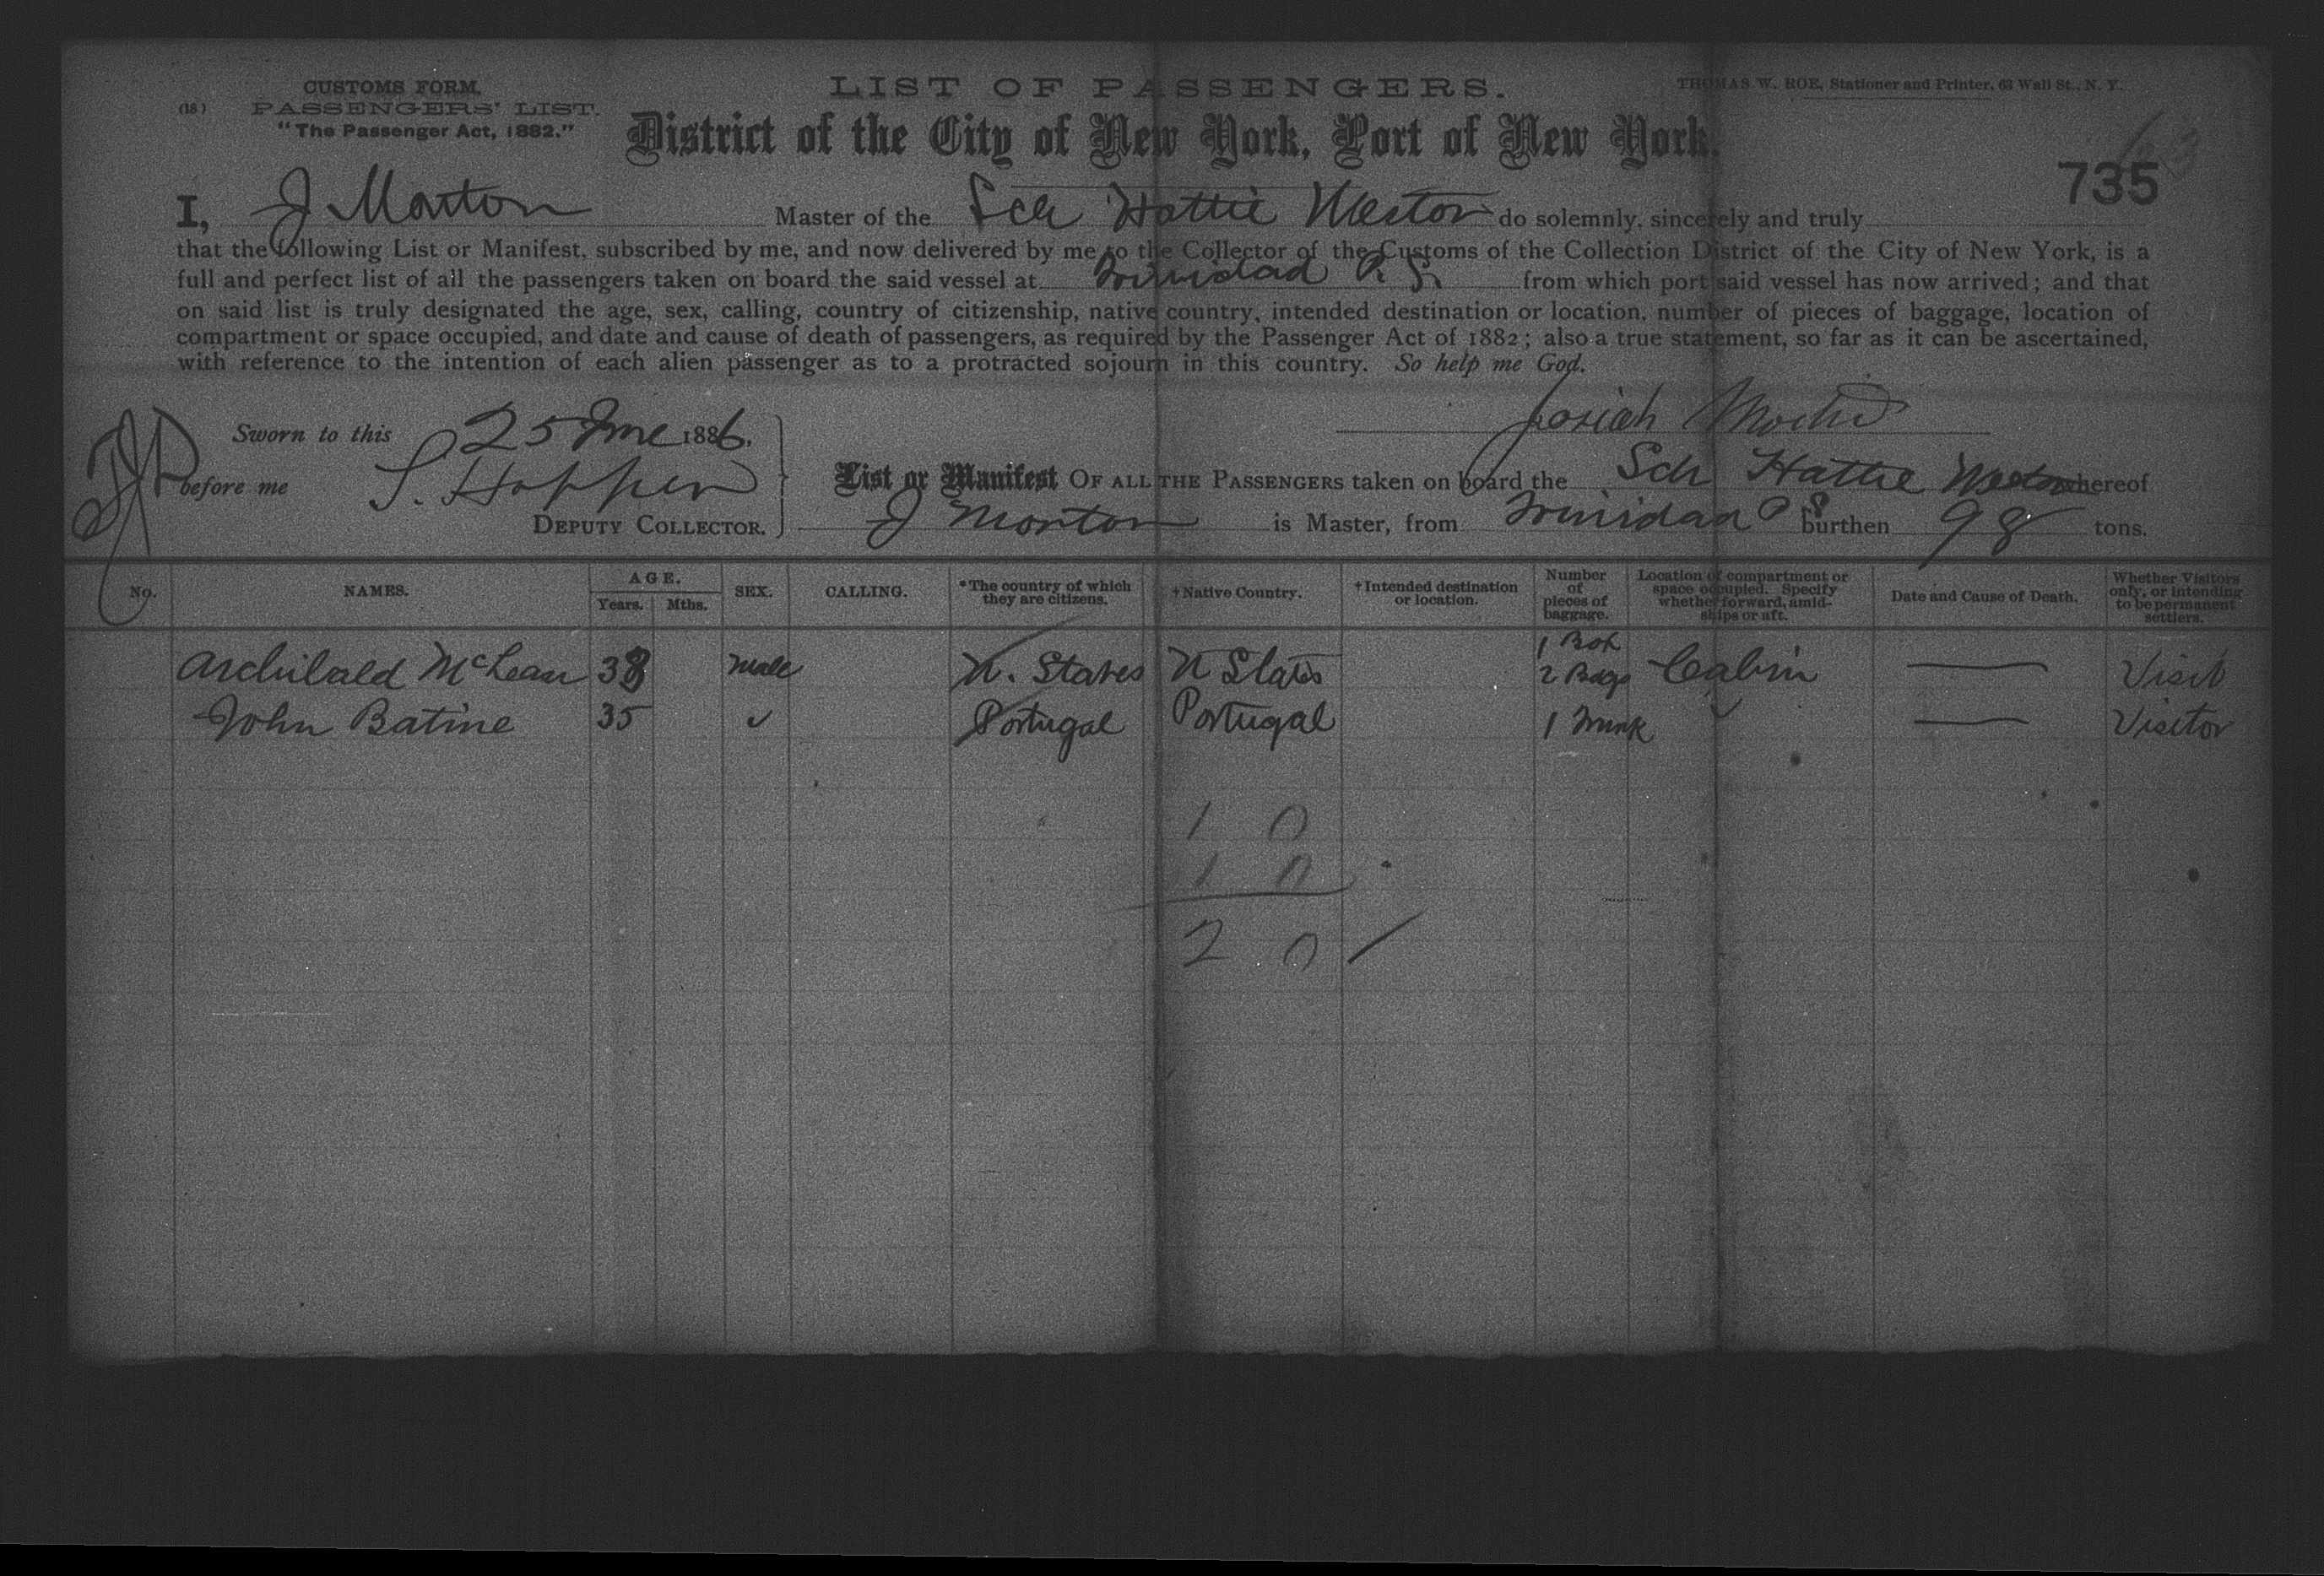 CUSTOMS FORM.
(18) PASSENGERS' LIST.
"The Passenger Act, 1882."
LIST OF PASSENGERS.
THOMAS W. ROE, Stationer and Printer, 63 Wall St., N. Y.
District of the City of New York, Port of New York.
735
I, J Morton Master of the Sch Hattie Weston do solemnly, sincerely and truly
that the following List or Manifest, subscribed by me, and now delivered by me to the Collector of the Customs of the Collection District of the City of New York, is a
full and perfect list of all the passengers taken on board the said vessel at Trinidad P. S. from which port said vessel has now arrived; and that
on said list is truly designated the age, sex, calling, country of citizenship, native country, intended destination or location, number of pieces of baggage, location of
compartment or space occupied, and date and cause of death of passengers, as required by the Passenger Act of 1882; also a true statement, so far as it can be ascertained,
with reference to the intention of each alien passenger as to a protracted sojourn in this country. So help me God.
Sworn to this 25 June 1886.
Josiah
before me S. Hopper
DEPUTY COLLECTOR.
List or Manifest OF ALL THE PASSENGERS taken on board the Sch Hattie Weston whereof
J Morton is Master, from Trinidad P S burthen 98 tons.
No. NAMES. AGE. Years. Mths. SEX. CALLING. *The country of which they are citizens. †Native Country. †Intended destination or location. Number of pieces of baggage. Location of compartment or space occupied. Specify whether forward, amidships or aft. Date and Cause of Death. Whether Visitors only, or intending to be permanent settlers.
Archibald McLean 38 Male U. States U States 1 Box 2 Bags Cabin — Visit
John Batine 35 ✓ Portugal Portugal 1 Trunk ✓ — Visitor
1 0
1 0
2 0 ✓